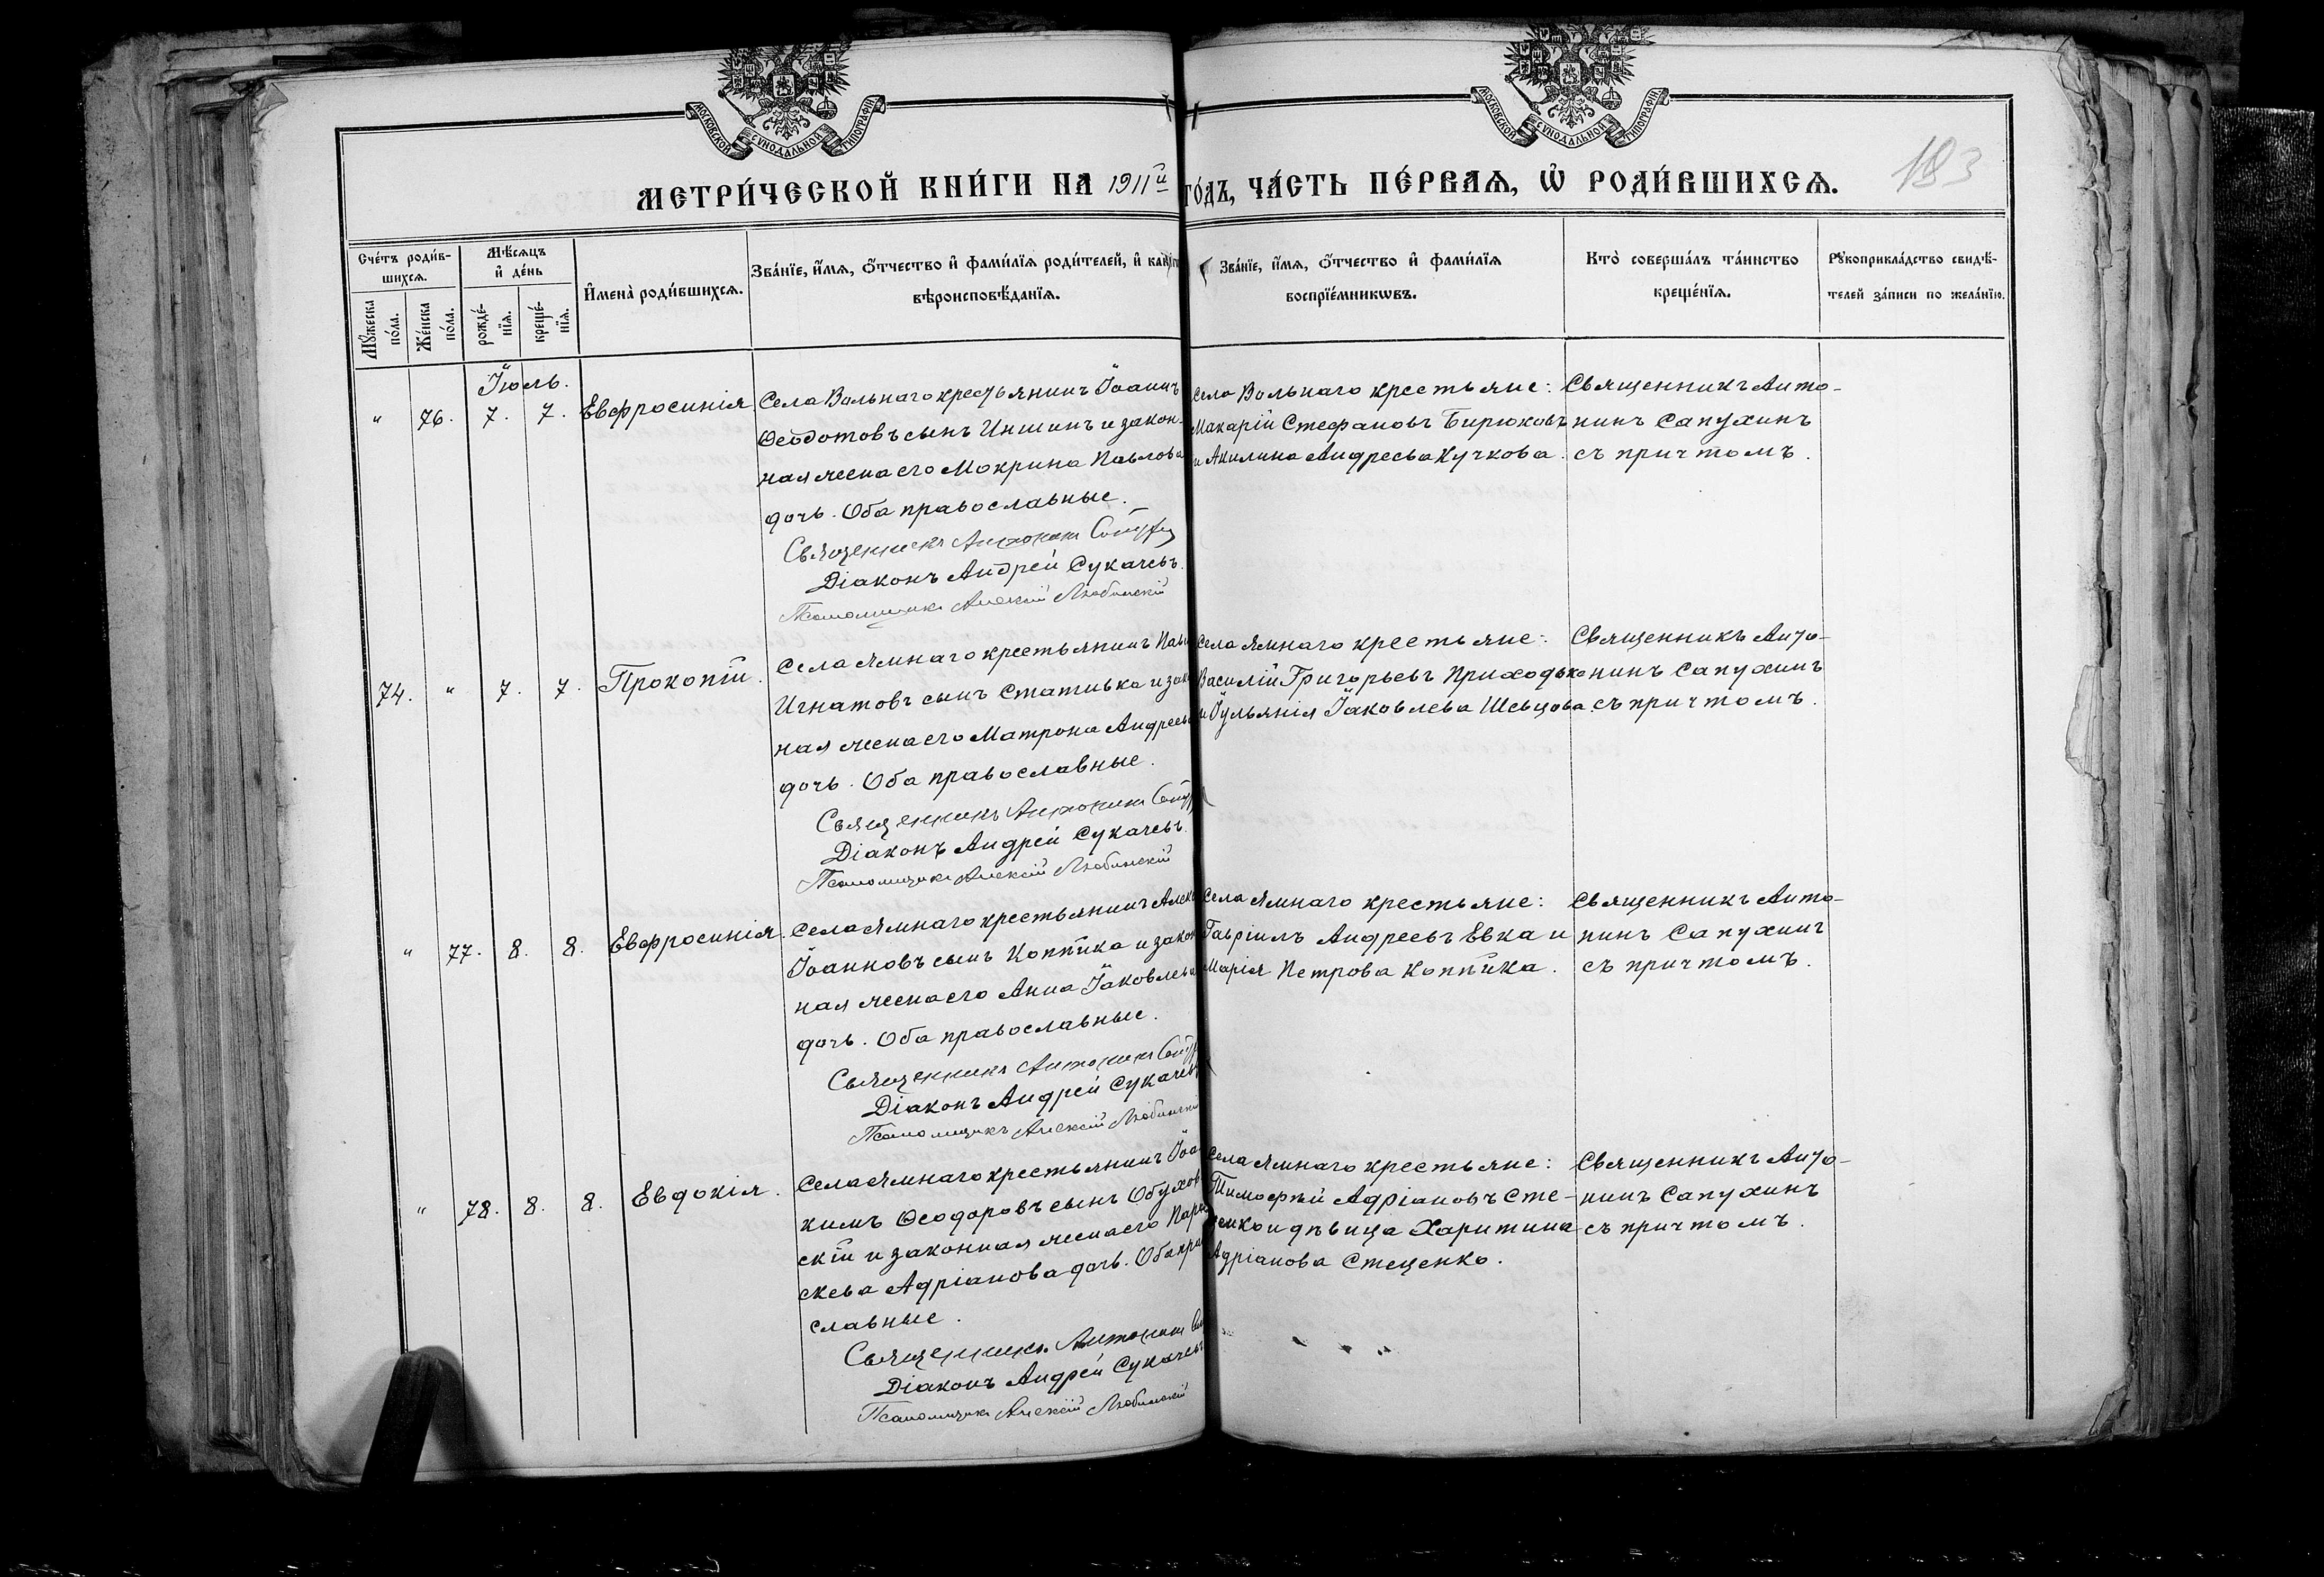 МОСКОВСКОЙ СѴНОДАЛЬНОЙ ТИПОГРАФІИ
МОСКОВСКОЙ СѴНОДАЛЬНОЙ ТИПОГРАФІИ
МЕТРИ́ЧЕСКОЙ КНИ́ГИ НА 1911й ГО́ДЪ, ЧА́СТЬ ПЕ́РВАѦ, Ѡ҆ РОДИ́ВШИХСѦ.
183
Сче́тъ роди́в-
шихсѧ.
Мꙋ́жеска
по́ла.
Же́нска
по́ла.
Мѣ́сѧцъ
и҆ де́нь
рожде́-
нїѧ.
креще́-
нїѧ.
И҆мена̀ роди́вшихсѧ.
Зва́нїе, и҆́мѧ, ѻ҆́тчество и҆ фами́лїѧ роди́телей, и҆
вѣроисповѣ́данїѧ.
Зва́нїе, и҆́мѧ, ѻ҆́тчество и҆ фами́лїѧ
воспрїе́мникѡвъ.
Кто̀ соверша́лъ та́инство
креще́нїѧ.
Рꙋкоприкла́дство свидѣ́-
телей за́писи по жела́нїю.
Іюль.
" 76. 7. 7. Евфросинія
Села Вольнаго крестьянинъ Іоаннъ
Ѳеодотовъ сынъ Иншинъ и закон-
ная жена его Мокрина Павлова
дочь. Оба православные.
Священникъ Антонинъ
Діаконъ Андрей Сукачевъ.
Псаломщикъ Алексій Любинскій
Села Вольнаго крестьяне:
Макарій Стефановъ Бирюковъ
и Акилина Андреева Кучкова.
Священникъ Анто-
нинъ Сапухинъ
съ причтомъ.
74. " 7. 7. Прокопій.
Села Ямнаго крестьянинъ
Игнатовъ сынъ Стативка и
ная жена его Матрона
дочь. Оба православные.
Священникъ Антонинъ
Діаконъ Андрей Сукачевъ.
Псаломщикъ Алексій Любинскій
Села Ямнаго крестьяне:
Василій Григорьевъ Приходько
и Іульянія Іаковлева Шевцова.
Священникъ Анто-
нинъ Сапухинъ
съ причтомъ.
" 77. 8. 8. Евфросинія.
Села Ямнаго крестьянинъ
Іоанновъ сынъ Коптика и
ная жена его Анна Іаковлева
дочь. Оба православные.
Священникъ Антонинъ
Діаконъ Андрей Сукачевъ
Псаломщикъ Алексій Любинскій
Села Ямнаго крестьяне:
Гавріилъ Андреевъ Евка и
Марія Петрова Коптика.
Священникъ Анто-
нинъ Сапухинъ
съ причтомъ.
" 78. 8. 8. Евдокія.
Села Ямнаго крестьянинъ Іоа-
кимъ Ѳеодоровъ сынъ Обухов-
скій и законная жена его Пара-
скева Адріанова дочь. Оба
славные.
Священникъ Антонинъ
Діаконъ Андрей Сукачевъ
Псаломщикъ Алексій Любинскій
Села Ямнаго крестьяне:
Тимофей Адріановъ Сте-
ценко и дѣвица Харитина
Адріанова Стеценко.
Священникъ Анто-
нинъ Сапухинъ
съ причтомъ.